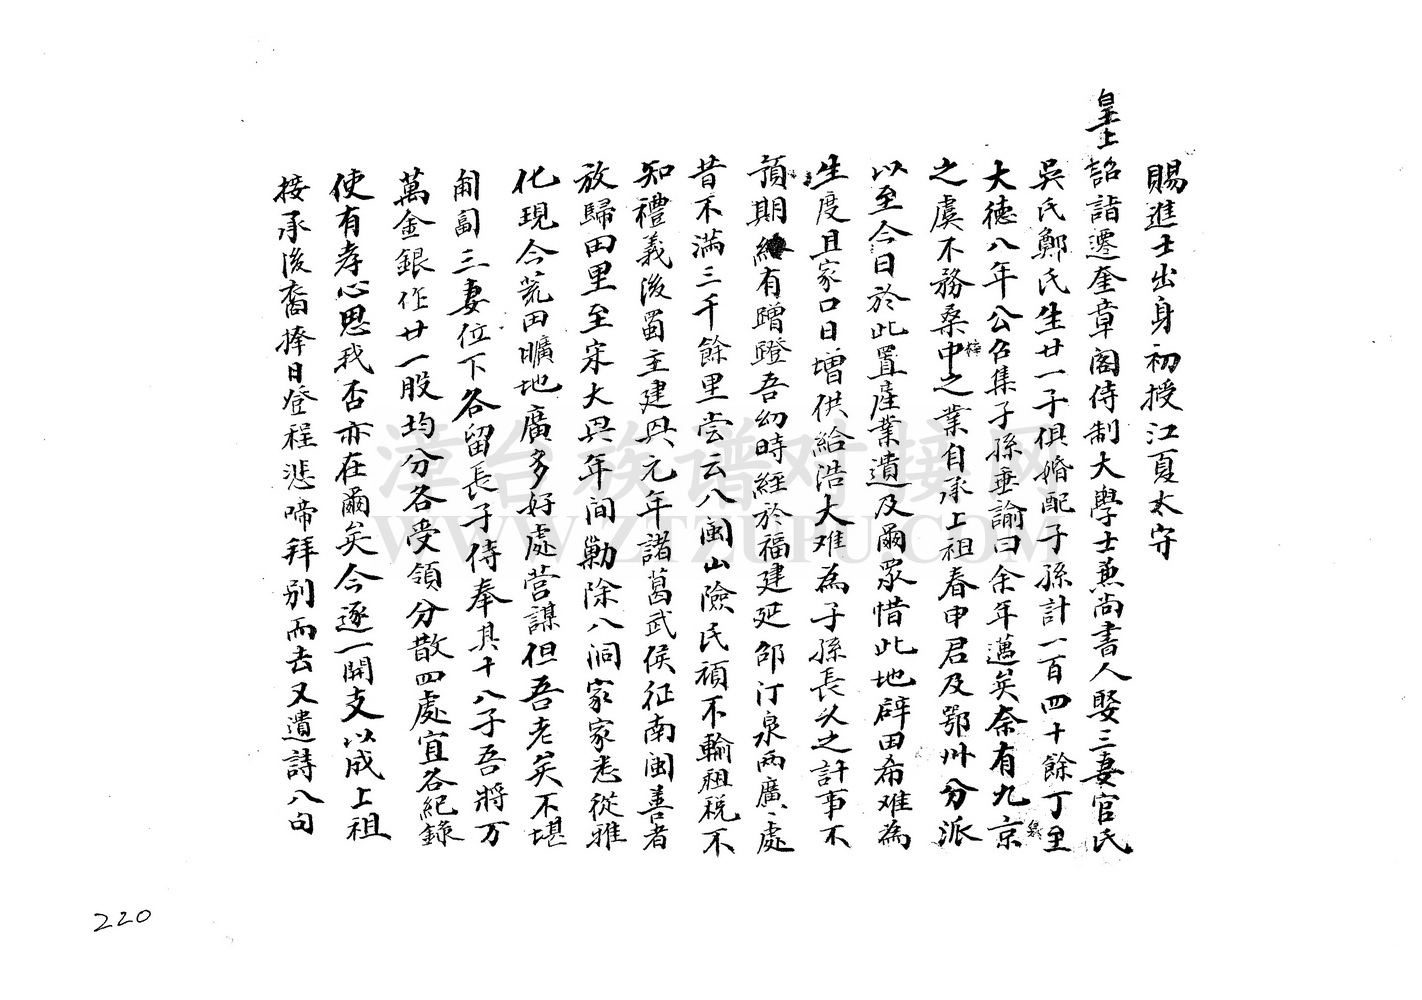 賜進士出身初授江夏太守
皇上詔誥遷奎章閣侍制大學士兼尚書人娶三妻官氏
吳氏鄭氏生廿一子俱婚配子孫計一百四十餘丁至
大德八年公召集子孫垂諭曰余年邁矣奈有九京
之虞不務桑梓中之業自承上祖春申君及鄂州分派
以至今日於此置產業遺及爾眾惜此地辟田希难為
生度且家口日增供給浩大难為子孫長久之計事不
預期終有蹭蹬吾幼時經於福建延邵汀泉兩廣處
昔不滿三千餘里尝云八闽山險民頑不輸租税不
知禮義後蜀主建興元年諸葛武侯征南闽善者
放歸田里至宋大興年間勦除八洞家家悉從雅
化現今荒田曠地廣多好處营謀但吾老矣不堪
匍匐三妻位下各留長子侍奉其十八子吾將万
萬金銀作廿一股均分各受領分散四處宜各紀錄
使有孝心思我否亦在爾矣今逐一開支以成上祖
接承後裔擇日登程悲啼拜别而去又遺詩八句
220
漳台族谱对接网
WWW.ZTZUPU.COM